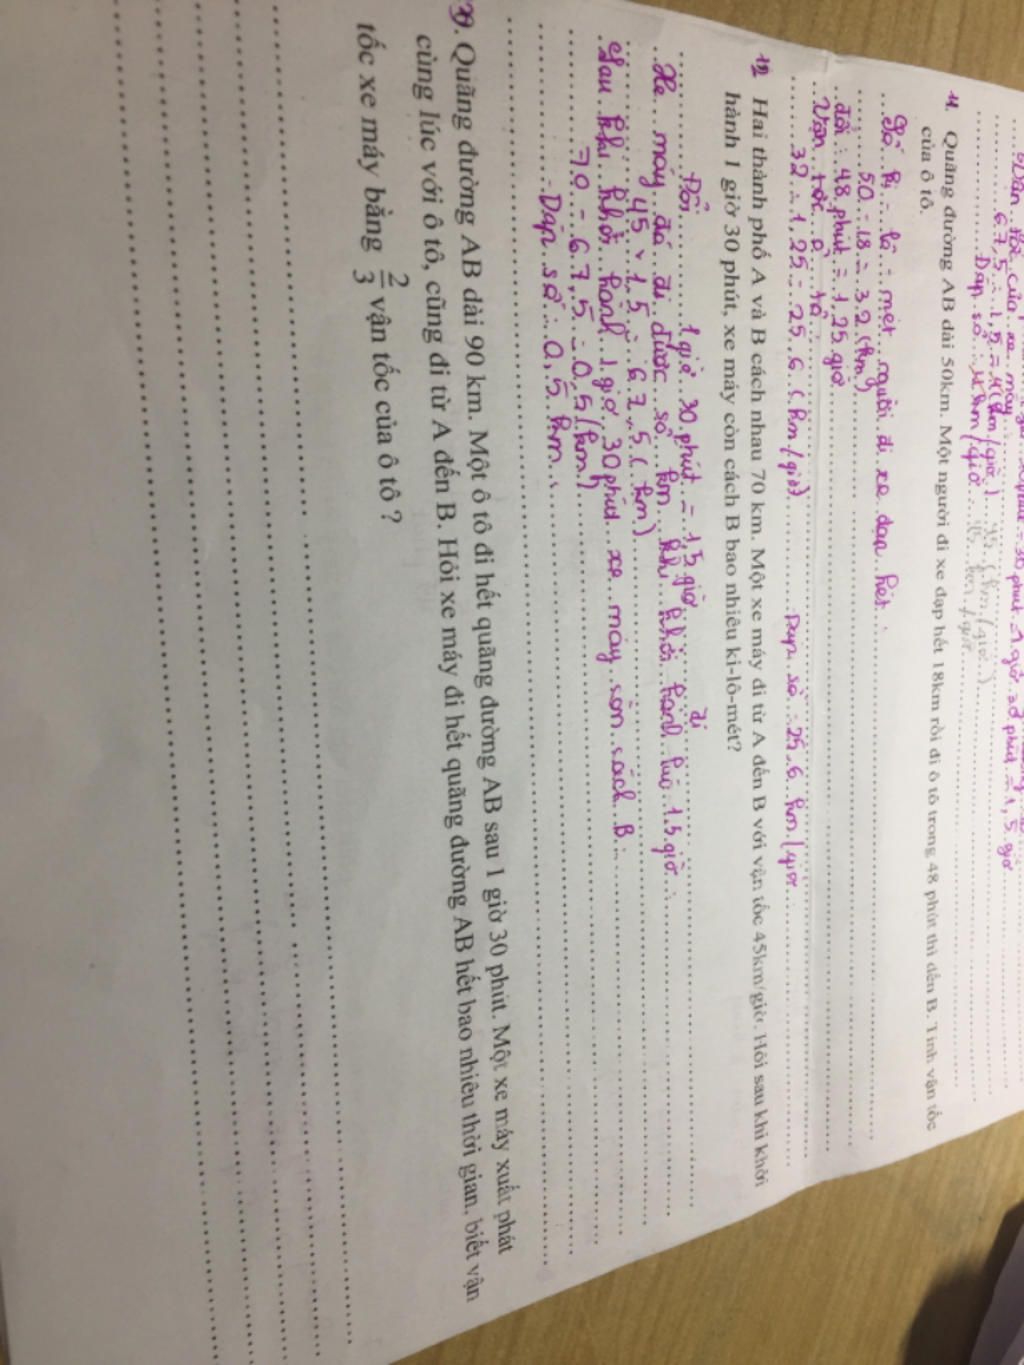 67,5 : 1,5 = (km/giờ)
Đáp số: km/giờ
11. Quãng đường AB dài 50km. Một người đi xe đạp hết 18km rồi đi ô tô trong 48 phút thì đến B. Tính vận tốc
của ô tô.
Số ki - lô - mét người đi xe đạp hết:
50 - 18 = 32 (km)
đổi: 48 phút = 1,25 giờ
Vận tốc ô tô
32 : 1,25 = 25,6 (km/giờ) Đáp số: 25,6 km/giờ
12 Hai thành phố A và B cách nhau 70 km. Một xe máy đi từ A đến B với vận tốc 45km/giờ. Hỏi sau khi khởi
hành 1 giờ 30 phút, xe máy còn cách B bao nhiêu ki-lô-mét?
Đổi 1 giờ 30 phút = 1,5 giờ
Xe máy đó đi được số km khi khởi hành đi 1,5 giờ:
45 x 1,5 = 67,5 (km)
Sau khi khởi hành 1 giờ 30 phút xe máy còn cách B:
70 - 67,5 = 0,5 (km)
Đáp số: 0,5 km.
Quãng đường AB dài 90 km. Một ô tô đi hết quãng đường AB sau 1 giờ 30 phút. Một xe máy xuất phát
cùng lúc với ô tô, cũng đi từ A đến B. Hỏi xe máy đi hết quãng đường AB hết bao nhiêu thời gian, biết vận
tốc xe máy bằng 2/3 vận tốc của ô tô ?